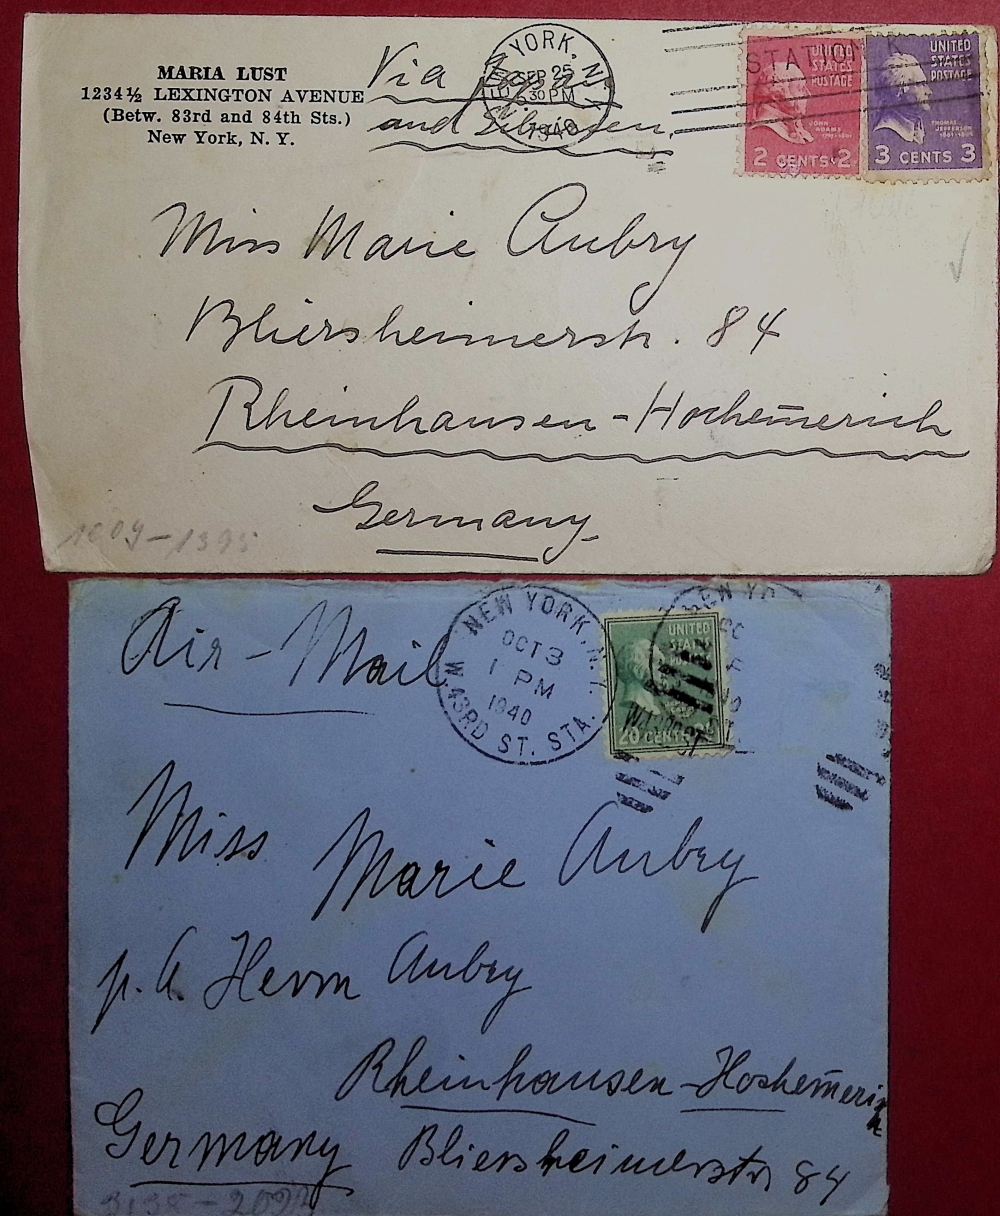 MARIA LUST
1234½ LEXINGTON AVENUE
(Betw. 83rd and 84th Sts.)
New York, N. Y.
Via
and Siberien
YORK, N.
SEP 25
30 PM
1940
STATION K
UNITED
STATES
POSTAGE
JOHN
ADAMS
2 CENTS 2
UNITED
STATES
POSTAGE
THOMAS
JEFFERSON
3 CENTS 3
Miss Marie Aubry
Bliersheimerstr. 84
Rheinhausen-Hochem̅erich
Germany
1009-1395
Air-Mail
NEW YORK, N.Y.
OCT 3
1 PM
1940
W. 43RD ST. STA.
NEW YO
UNITED
20 CENTS
Miss Marie Aubry
p. A. Herrn Aubry
Rheinhausen-Hochem̅erich
Germany Bliersheimerstr 84